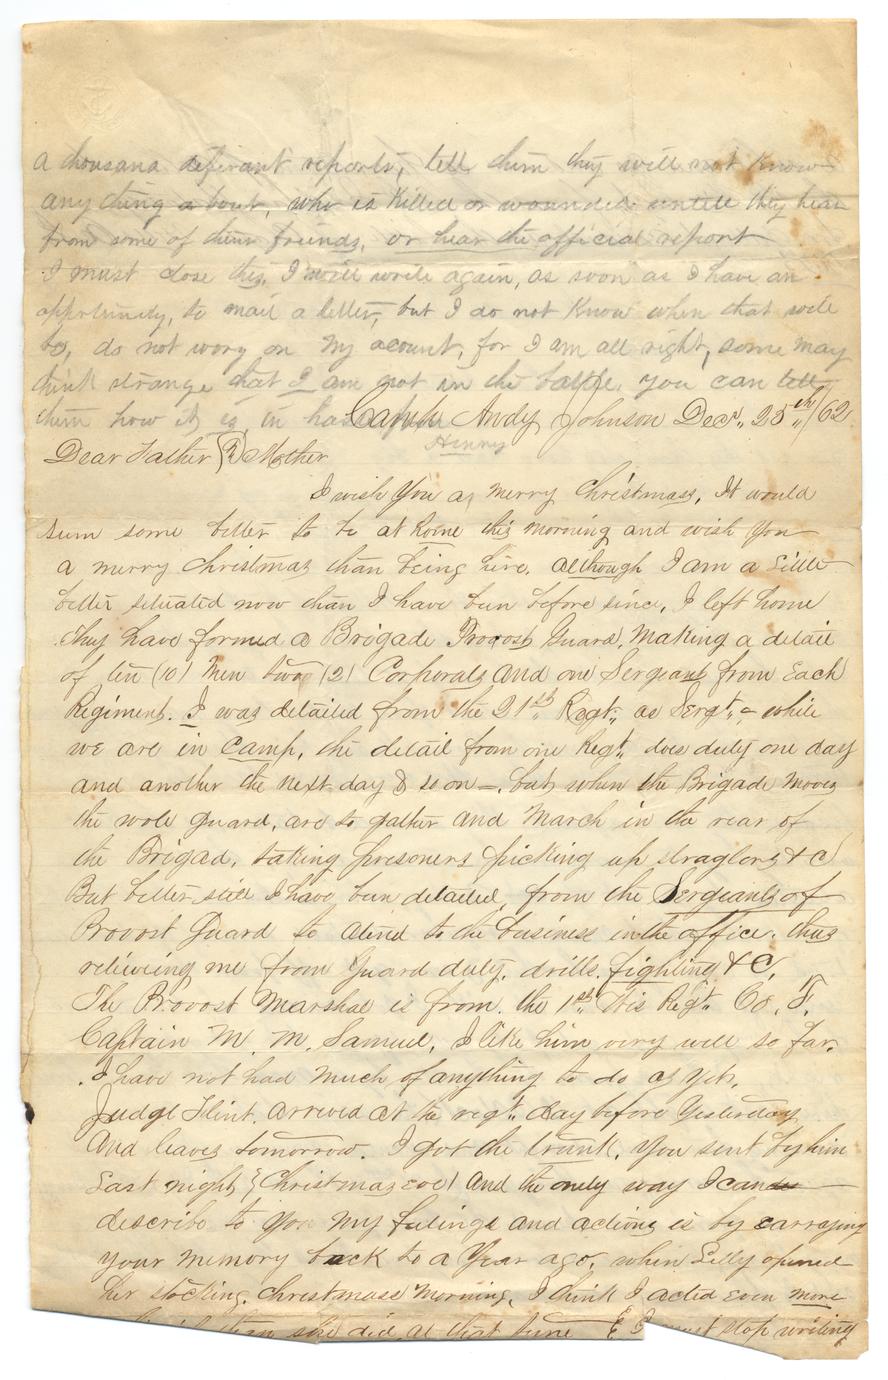 a thousand diferant reports, tell them they will not know
any thing a bout, who is killed or wounded untell they hear
from some of their friends, or hear the official report
I must close this, I will write again, as soon as I have an
oppertunity, to mail a letter, but I do not know when that will
be, do not wory on my acount, for I am all right, some may
think strange that I am not in the battle, you can tell
them how it is, in haste
Henry
Camp Andy Johnson Dec. 25th /62
Dear Father & Mother
I wish You a, merry Christmass, It would
sum some better to be at home this morning and wish You
a merry Christmas than being hire, although I am a little
better situated now than I have bun before since, I left home
They have formed a Brigade Provost Guard, Making a detail
of ten (10) Men two (2) Corporals and one Sergeant from Each
Regiment. I was detailed from the 21st Regt. as Sergt. - while
we are in Camp, the detail from one Regt. does duty one day
and another the next day & so on -, but when the Brigade Moves
the wole guard, are to gather and March in the rear of
the Brigad, taking prisoners picking up straglers & C
But better still I have bun detailed, from the Sergeants of
Provost Guard to atend to the business in the office, thus
relieving me from Guard duty, drills, fighting & C,
The Provost Marshal is from, the 1st Wis Regt. Co, F,
Captain M. M. Samuel, I like him very well so far,
I have not had Much of anything to do as yet,
Judge Flint. arrived at the regt. day before Yesterday
and leaves tomorrow. I got the trunk, you sent by him
Last night (Christmas Eve) and the only way I can
describe to You My fulings and actions is by carrying
your Memory back to a Year ago, when Lilly opened
her stocking, Christmass Morning, I think I acted even more
than she did, at that time & I must stop writing